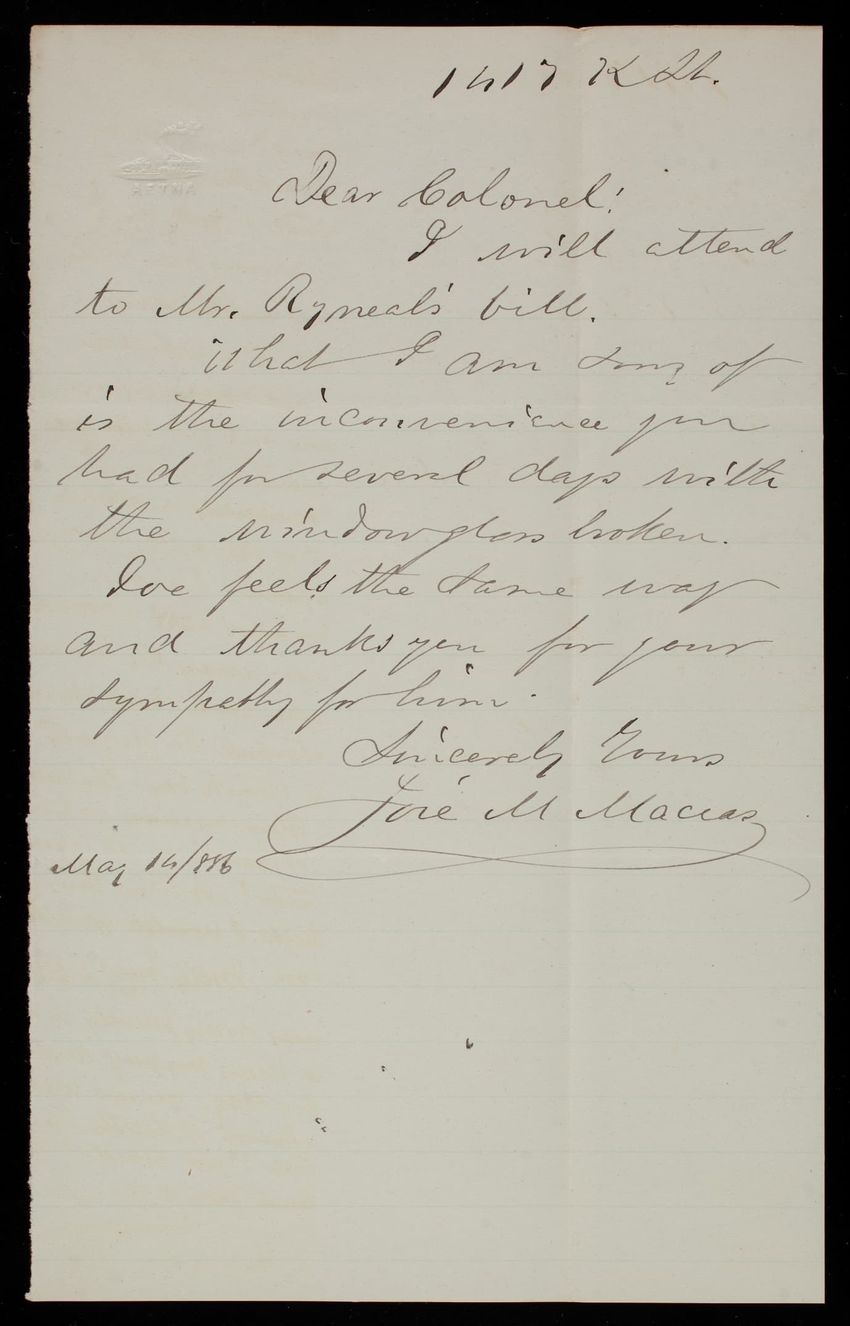 1417 K St.
AETNA
Dear Colonel!
I will attend
to Mr. Ryneal's bill.
What I am sorry of
is the inconvenience you
had for several days with
the window glass broken.
Joe feels the same way
and thanks you for your
sympathy for him.
Sincerely Yours
José M Macias
May 14/886